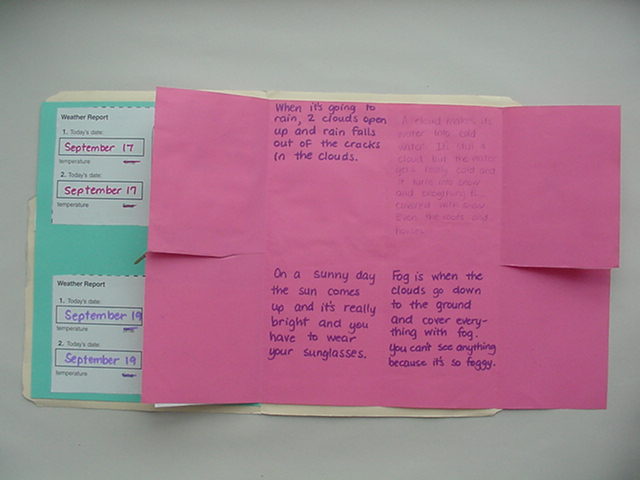 Weather Report
1. Today's date:
September 17
temperature
2. Today's date:
September 17
temperature
Weather Report
1. Today's date:
September 19
temperature
2. Today's date:
September 19
temperature
When it's going to
rain, 2 clouds open
up and rain falls
out of the cracks
in the clouds.
A cloud makes its
water into cold
water. It's still a
cloud but the water
gets really cold and
it turns into snow
and everything is
covered with snow.
Even the roofs and
houses.
On a sunny day
the sun comes
up and it's really
bright and you
have to wear
your sunglasses.
Fog is when the
clouds go down
to the ground
and cover every-
thing with fog.
You can't see anything
because it's so foggy.